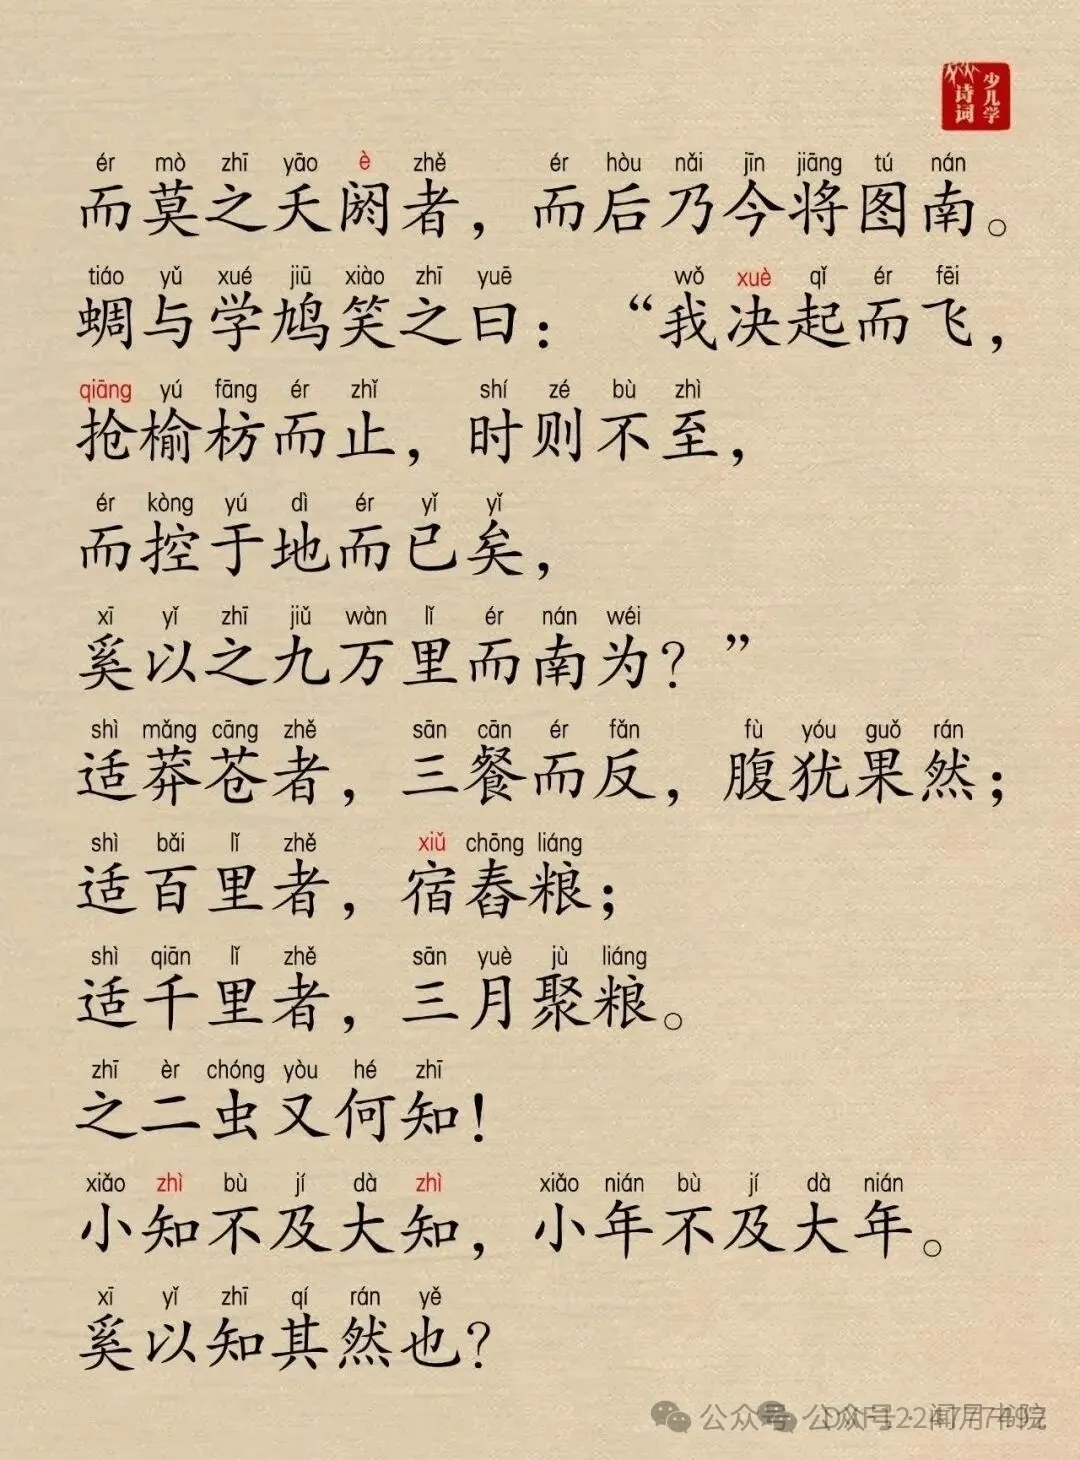 少儿学
诗词
ér mò zhī yāo è zhě ér hòu nǎi jīn jiāng tú nán
而莫之夭阏者，而后乃今将图南。
tiáo yǔ xué jiū xiào zhī yuē wǒ xuè qǐ ér fēi
蜩与学鸠笑之曰：“我决起而飞，
qiāng yú fāng ér zhǐ shí zé bù zhì
抢榆枋而止，时则不至，
ér kòng yú dì ér yǐ yǐ
而控于地而已矣，
xī yǐ zhī jiǔ wàn lǐ ér nán wéi
奚以之九万里而南为？”
shì mǎng cāng zhě sān cān ér fǎn fù yóu guǒ rán
适莽苍者，三餐而反，腹犹果然；
shì bǎi lǐ zhě xiǔ chōng liáng
适百里者，宿舂粮；
shì qiān lǐ zhě sān yuè jù liáng
适千里者，三月聚粮。
zhī èr chóng yòu hé zhī
之二虫又何知！
xiǎo zhì bù jí dà zhì xiǎo nián bù jí dà nián
小知不及大知，小年不及大年。
xī yǐ zhī qí rán yě
奚以知其然也？
公众号 公众号·闻月书院